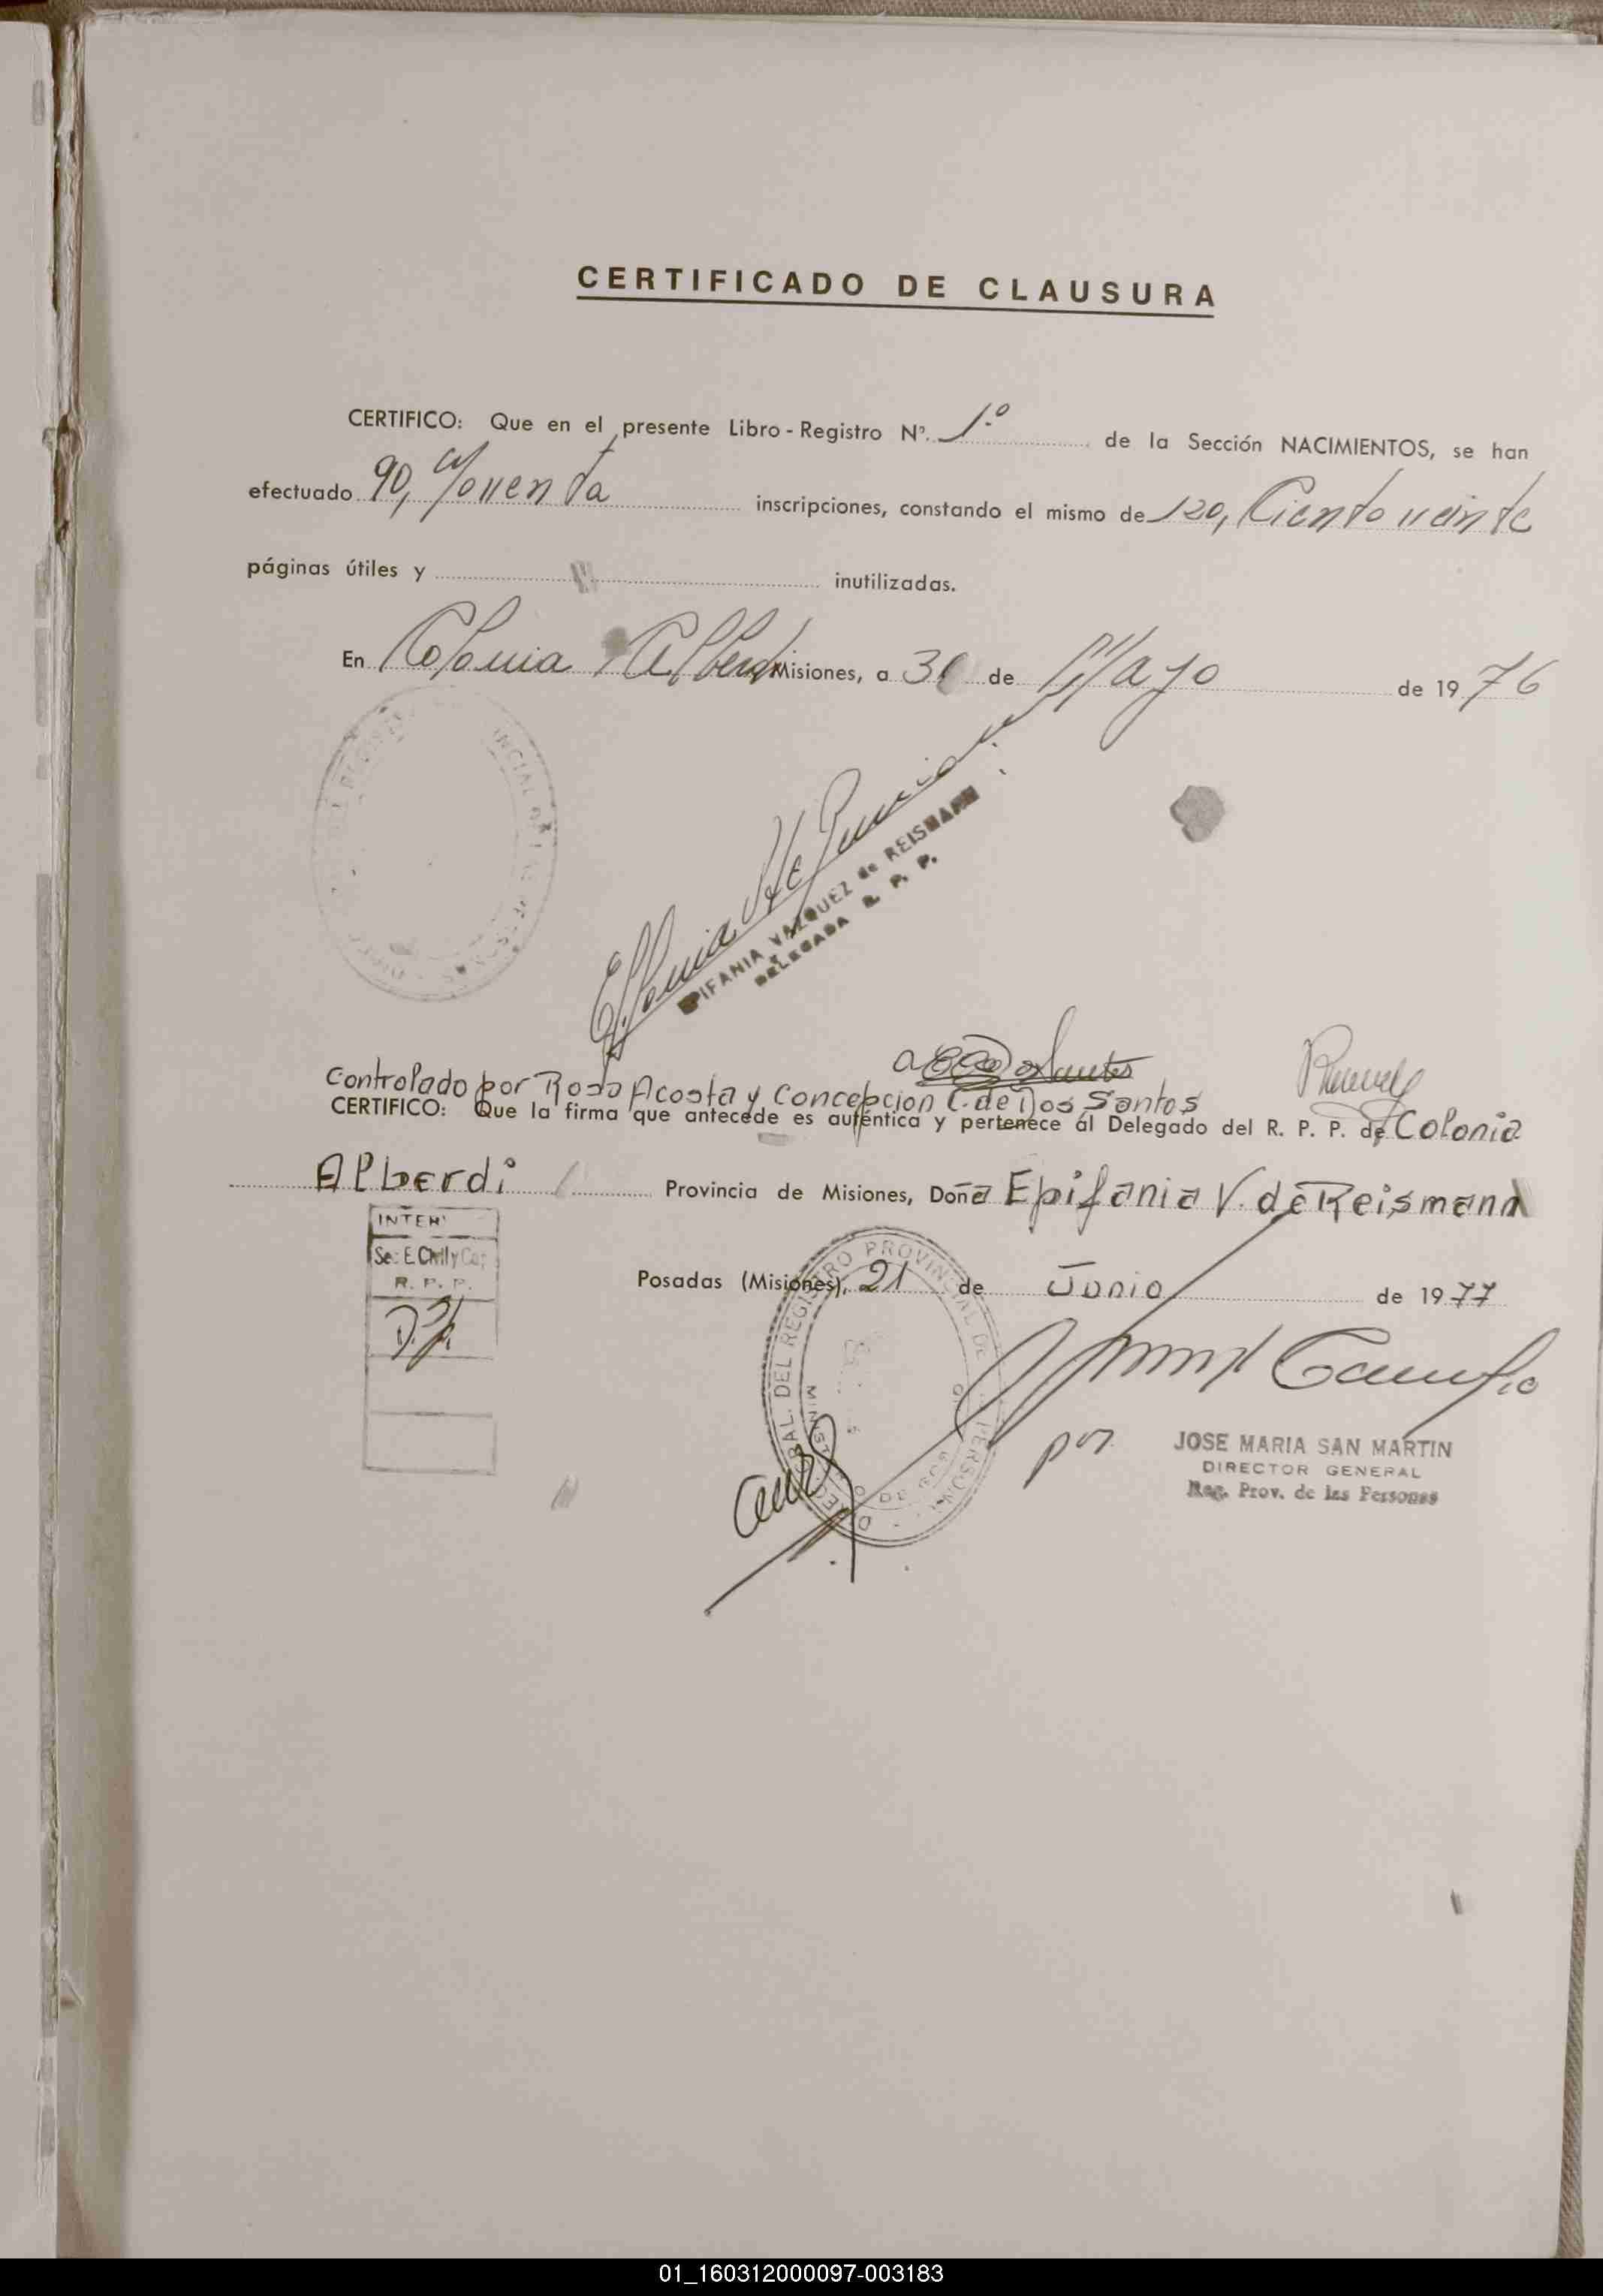 CERTIFICADO DE CLAUSURA
CERTIFICO: Que en el presente Libro-Registro Nº. 1.º de la Sección NACIMIENTOS, se han
efectuado 90, Noventa inscripciones, constando el mismo de 120, Ciento veinte
páginas útiles y inutilizadas.
En Colonia Alberdi Misiones, a 30 de Mayo de 1976
EPIFANIA VAZQUEZ de REISMANN
DELEGADA R. P. P.
Controlado por Rosa Acosta y Concepcion C. de Dos Santos
CERTIFICO: Que la firma que antecede es auténtica y pertenece al Delegado del R. P. P. de Colonia
Alberdi Provincia de Misiones, Doña Epifania V. de Reismann
INTER
Sec E. Civil y Cap
R. P. P.
Posadas (Misiones), 21 de Junio de 1977
DIREC. GRAL. DEL REGISTRO PROVINCIAL DE
por
JOSE MARIA SAN MARTIN
DIRECTOR GENERAL
Reg. Prov. de las Personas
01_160312000097-003183